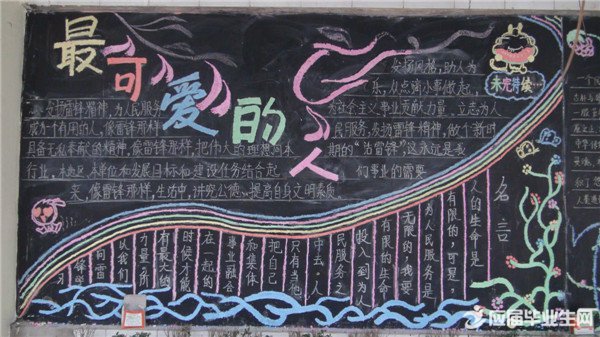 最可爱的人
发扬雷锋精神,为人民服务
成为一个有用的人,像雷锋那样
具备无私奉献的精神,像雷锋那样,把伟大的理想同本
行业,本地区,本单位和发展目标和建设任务结合起
来,像雷锋那样,生活中,讲究公德,提高自身文明素质
发扬风格,助人为
乐,从点滴小事做起,
为社会主义事业贡献力量,立志为人
民服务,发扬雷锋精神,做个新时
期的“活雷锋”这永远是我
们事业的需要
未完待续…
名言
人的生命是
有限的,可是,
为人民服务是
无限的,我要
把有限的生命
投入到为人
民服务之
中去。人
只有当他
把自己
和集体
事业融合
在一起的
时候才最
有最大的
力量。所
以我们
向雷
锋学
习
应届毕业生网